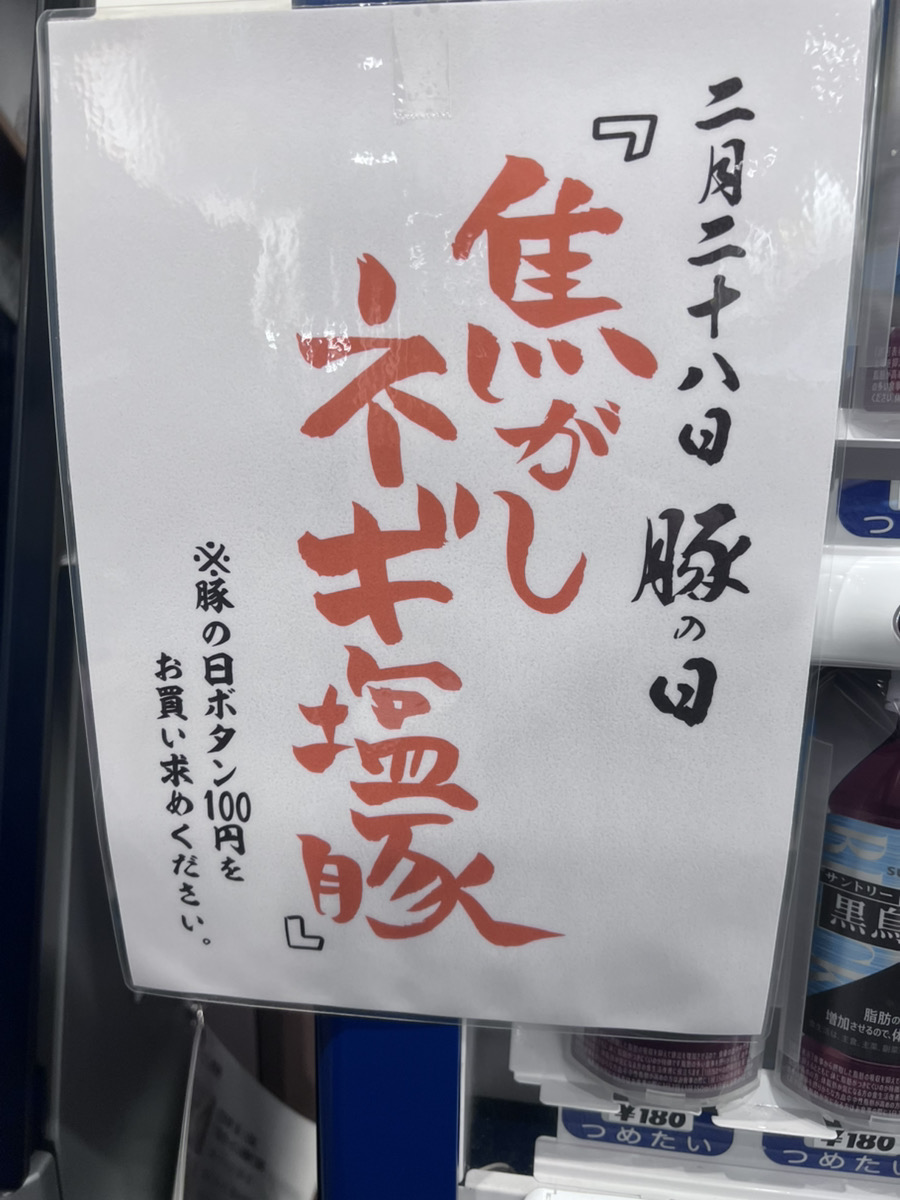 二月二十八日 豚の日
『焦がし
ネギ塩豚』
※豚の日ボタン100円を
お買い求めください。
サントリー
脂肪の
増加させるので、体
¥180
つめたい
¥180
つめたい